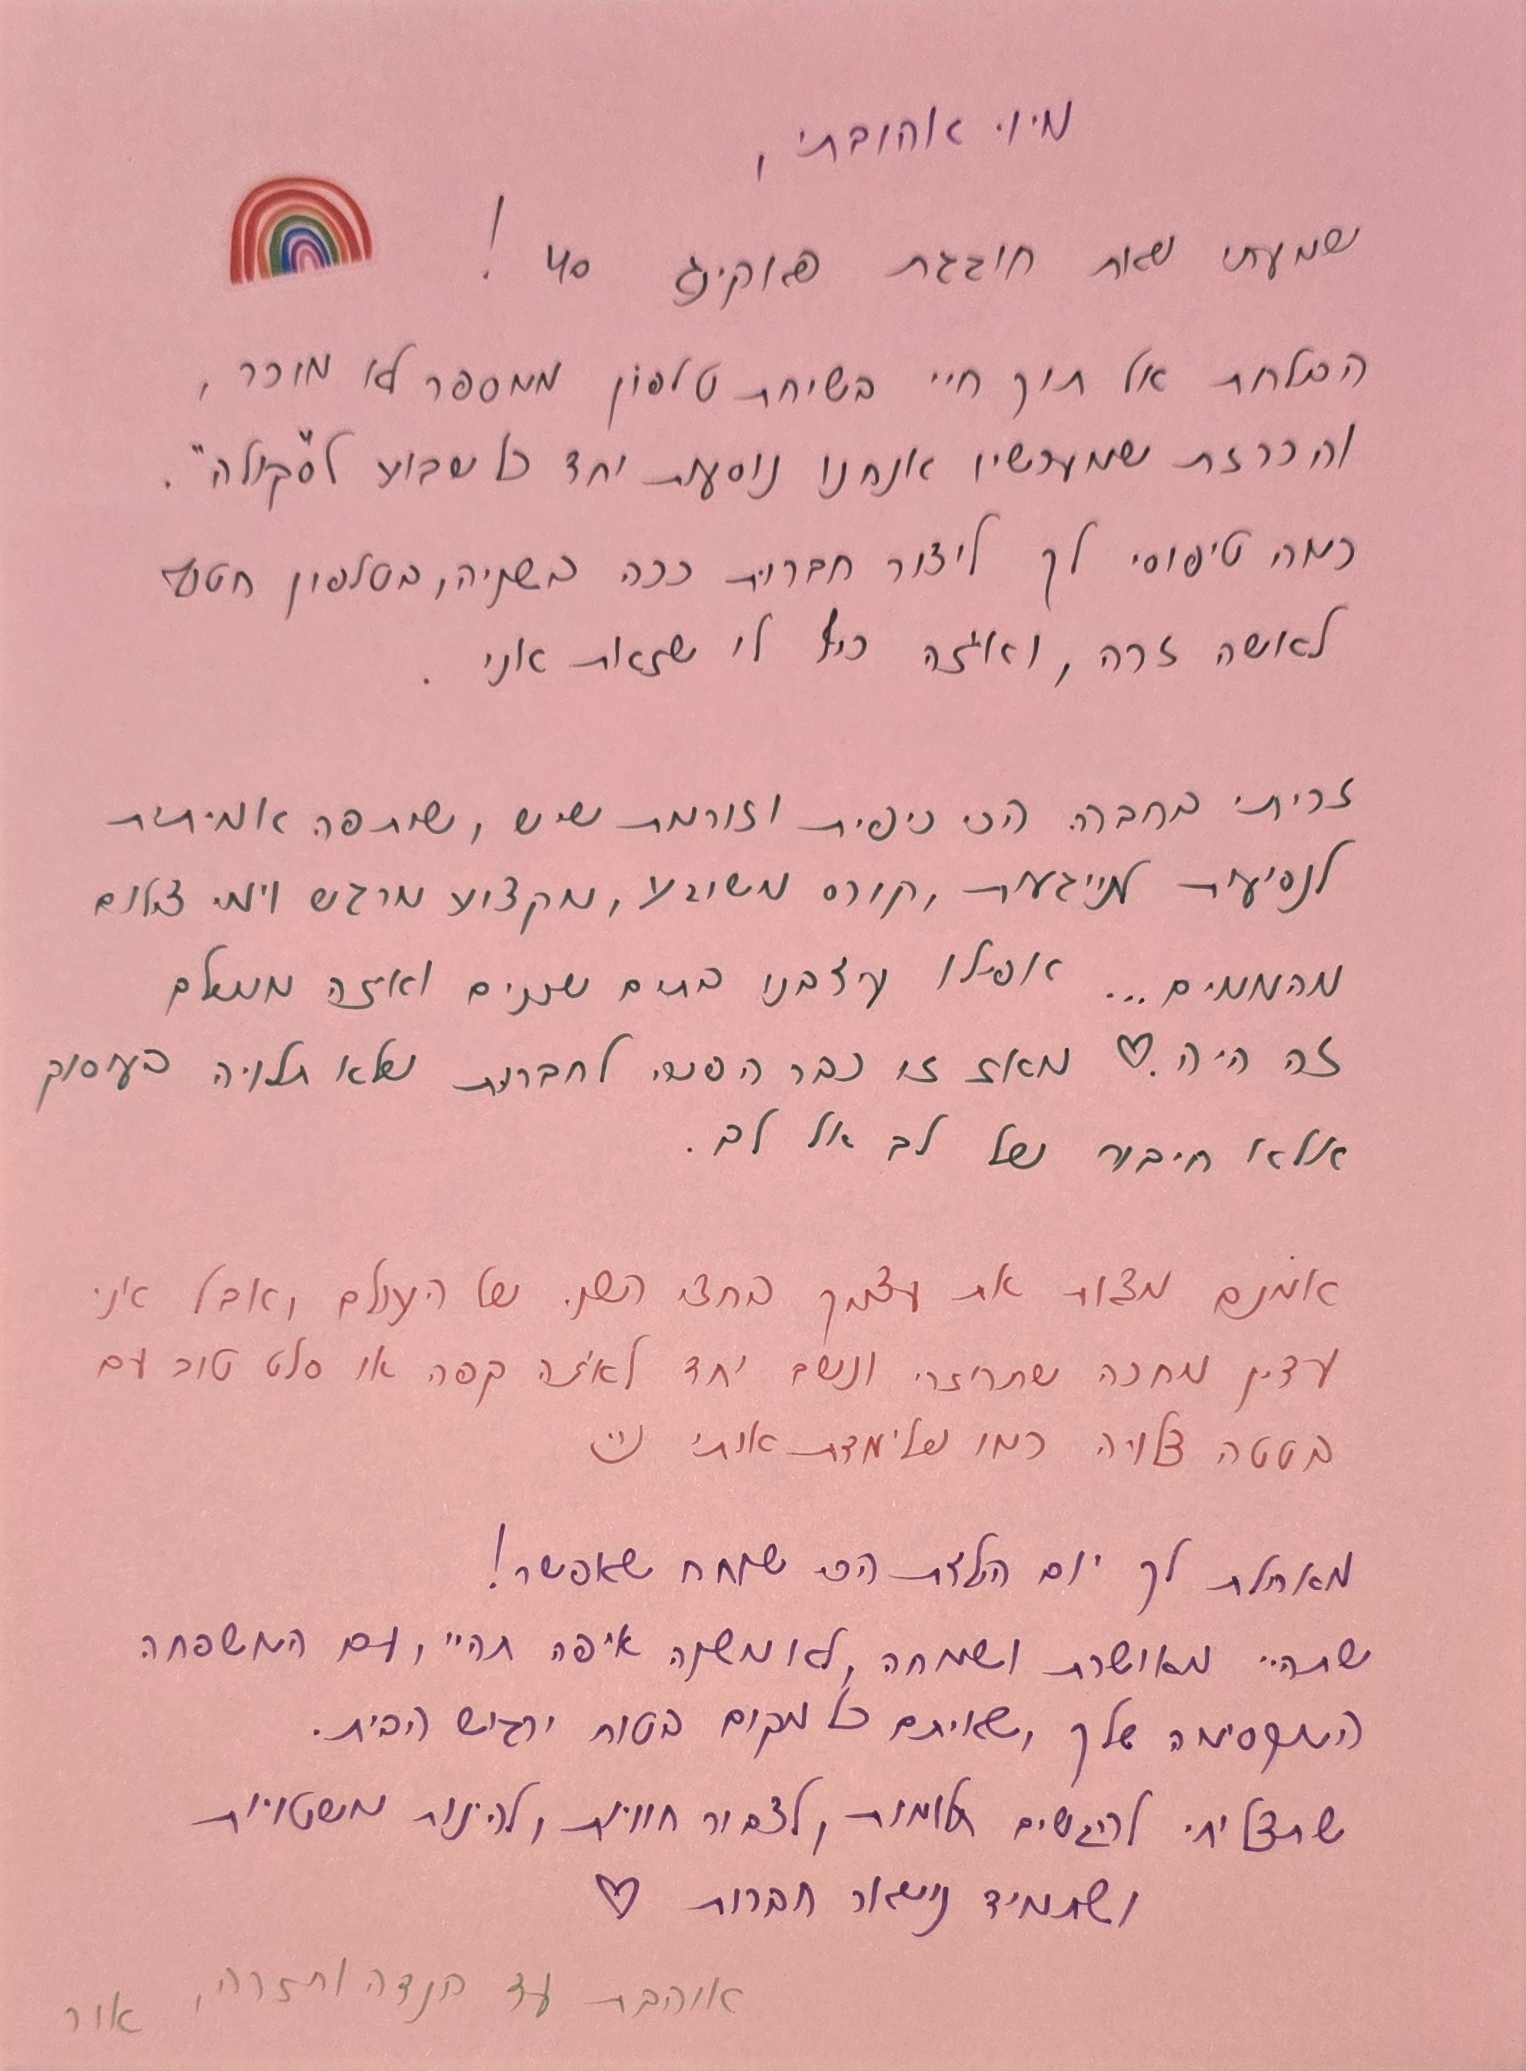 מיוי אהובתי,
שמעתי שאת חוגגת פאקינג 40!
התלחת אל תוך חיי בשיחת טלפון ממספר לא מוכר,
והכרזת שמעכשיו אנחנו נוסעות יחד כל שבוע ל"סקולה".
כמה טיפוסי לך ליצור חברות ככה בשניה, בטלפון חטוף
לאשה זרה, ואיזה כיף לי שזאת אני.
זכיתי בחברה הכי כיפית וזורמת שיש, שותפה אמיתית
לנסיעות מייגעות, קורס משוגע, מקצוע מרגש וימי צילום
מהממים... אפילו עיצבנו בתים שכנים ואיזה מושלם
זה היה.♡ מאז זו כבר הפכה לחברות שלא תלויה בעיסוק
אלא חיבור של לב אל לב.
אומנם מצאת את עצמך בחצי השני של העולם, אבל אני
עדיין מחכה שתחזרי ונשב יחד לאיזה קפה או סלט טוב עם
בטטה צלויה כמו שלימדת אותי
מאחלת לך יום הולדת הכי שמח שאפשר!
שתהיי מאושרת ושמחה, לא משנה איפה תהיי, עם המשפחה
המקסימה שלך, שאיתם כל מקום בטוח ירגיש הבית.
שתצליחי להגשים חלומות, לצבור חוויות, להינות משטויות
ושתמיד נישאר חברות ♡
אוהבת עד קנדה וחזרה, אור